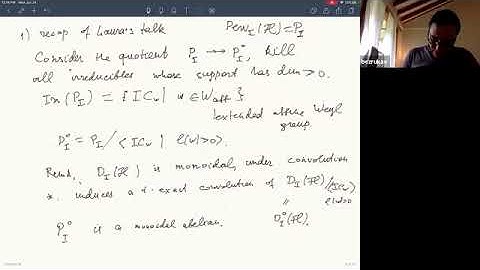 1) recap of Laura's talk Perv_I(Fl) = P_I
Consider the quotient P_I → P_I^0, kill
all irreducibles whose support has dim > 0.
Irr(P_I) = { IC_w | w ∈ W_aff }
extended affine Weyl
group.
P_I^0 = P_I / < IC_w | l(w)>0 >.
D_I(Fl) is monoidal, under convolution
* induces a t-exact convolution of D_I(Fl)/<IC_w>
l(w)>0
"
P_I^0 is a monoidal abelian. D_I^0(Fl).